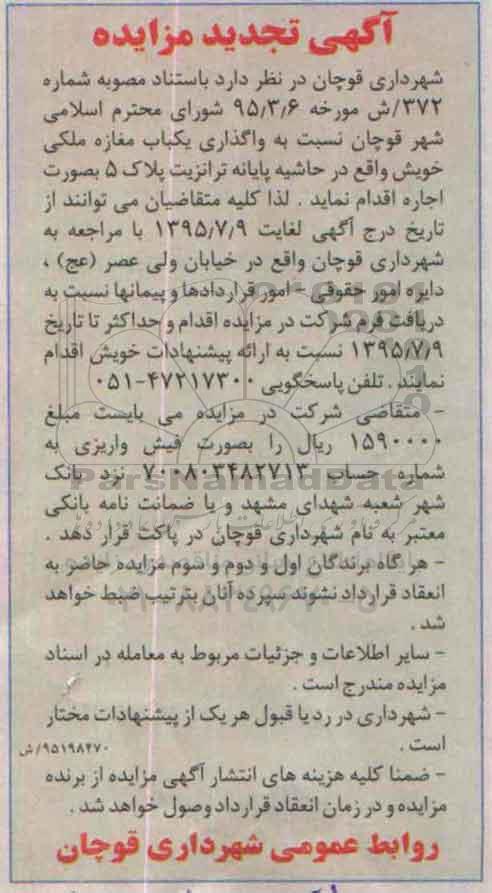 آگهی تجدید مزایده
شهرداری قوچان در نظر دارد باستناد مصوبه شماره
۳۷۲/ش مورخه ۹۵٫۳٫۶ شورای محترم اسلامی
شهر قوچان نسبت به واگذاری یکباب مغازه ملکی
خویش واقع در حاشیه پایانه ترانزیت پلاک ۵ بصورت
اجاره اقدام نماید . لذا کلیه متقاضیان می توانند از
تاریخ درج آگهی لغایت ۱۳۹۵٫۷٫۹ با مراجعه به
شهرداری قوچان واقع در خیابان ولی عصر (عج) ،
دایره امور حقوقی - امور قراردادها و پیمانها نسبت به
دریافت فرم شرکت در مزایده اقدام و حداکثر تا تاریخ
۱۳۹۵٫۷٫۹ نسبت به ارائه پیشنهادات خویش اقدام
نمایند . تلفن پاسخگویی ۴۷۲۱۷۳۰۰-۰۵۱
- متقاضی شرکت در مزایده می بایست مبلغ
۱۵۹۰۰۰۰ ریال را بصورت فیش واریزی به
شماره حساب ۷۰۰۸۰۳۴۸۲۷۱۳ نزد بانک
ParsNamadData
شهر شعبه شهدای مشهد و یا ضمانت نامه بانکی
معتبر به نام شهرداری قوچان در پاکت قرار دهد .
- هر گاه برندگان اول و دوم و سوم مزایده حاضر به
انعقاد قرارداد نشوند سپرده آنان بترتیب ضبط خواهد
شد .
- سایر اطلاعات و جزئیات مربوط به معامله در اسناد
مزایده مندرج است .
- شهرداری در رد یا قبول هر یک از پیشنهادات مختار
است .
۹۵۱۹۸۴۷۰/ش
- ضمنا کلیه هزینه های انتشار آگهی مزایده از برنده
مزایده و در زمان انعقاد قرارداد وصول خواهد شد .
روابط عمومی شهرداری قوچان